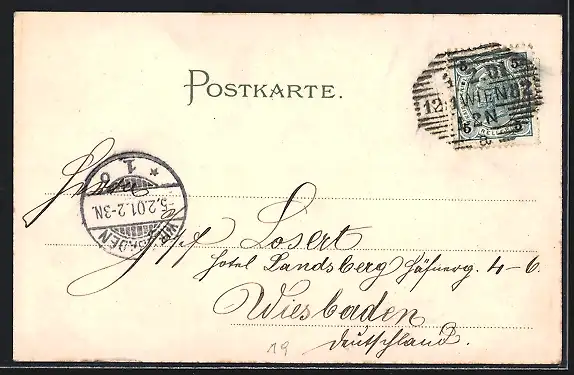 POSTKARTE.
5 5
WIEN
12.1
2N
8
5
1
5.2.01.2-3N.
WIESBADEN
Herrn
Josef Losert
Hotel Landsberg Häfnerg. 4-6
Wiesbaden
Deutschland.
19